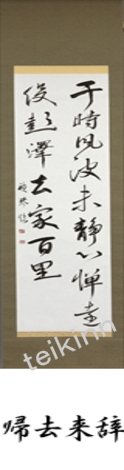 于時風波未静心憚遠
役彭澤去家百里
帰去来辞
teikinn